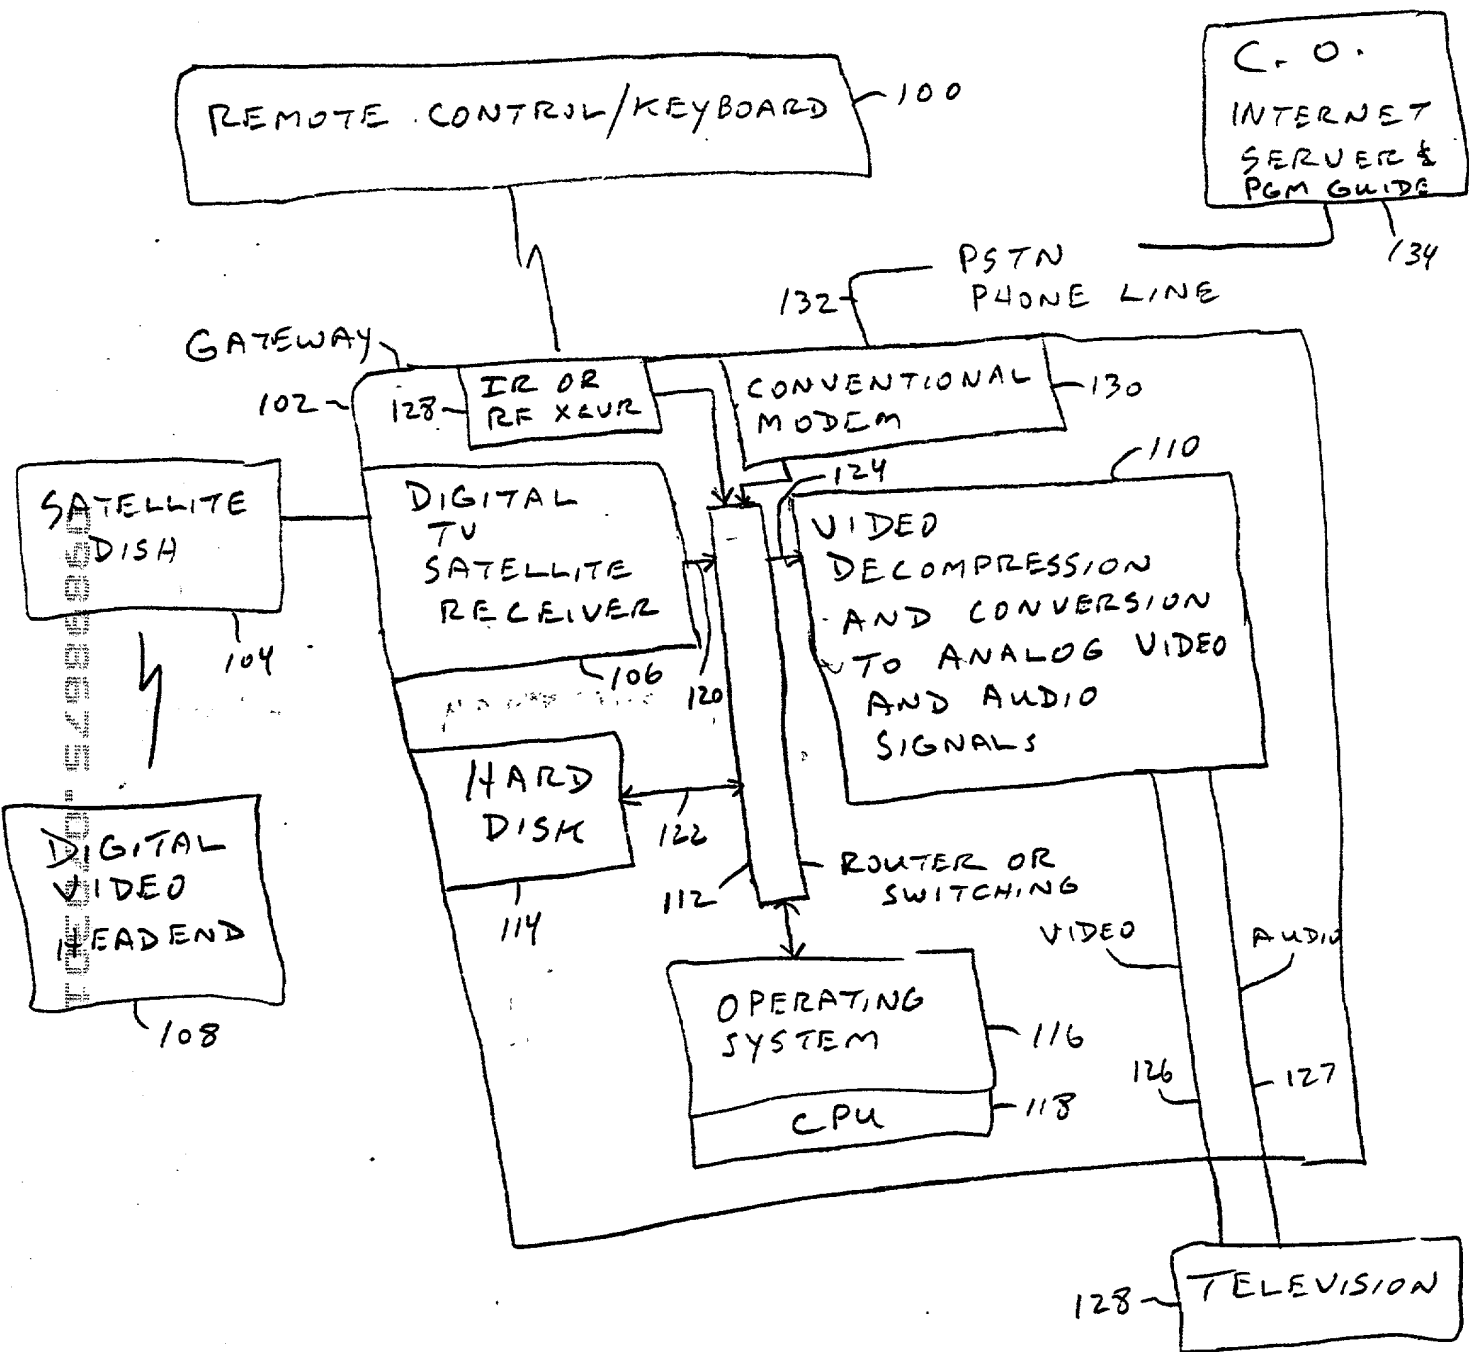 C. O.
INTERNET
SERVER &
PGM GUIDE
134
REMOTE CONTROL/KEYBOARD
100
PSTN
PHONE LINE
132
GATEWAY
102
IR OR
RF XCVR
128
CONVENTIONAL
MODEM
130
124
110
SATELLITE
DISH
104
DIGITAL
TV
SATELLITE
RECEIVER
106
120
VIDEO
DECOMPRESSION
AND CONVERSION
TO ANALOG VIDEO
AND AUDIO
SIGNALS
HARD
DISK
114
122
112
ROUTER OR
SWITCHING
DIGITAL
VIDEO
HEADEND
108
VIDEO
AUDIO
OPERATING
SYSTEM
116
CPU
118
126
127
128
TELEVISION